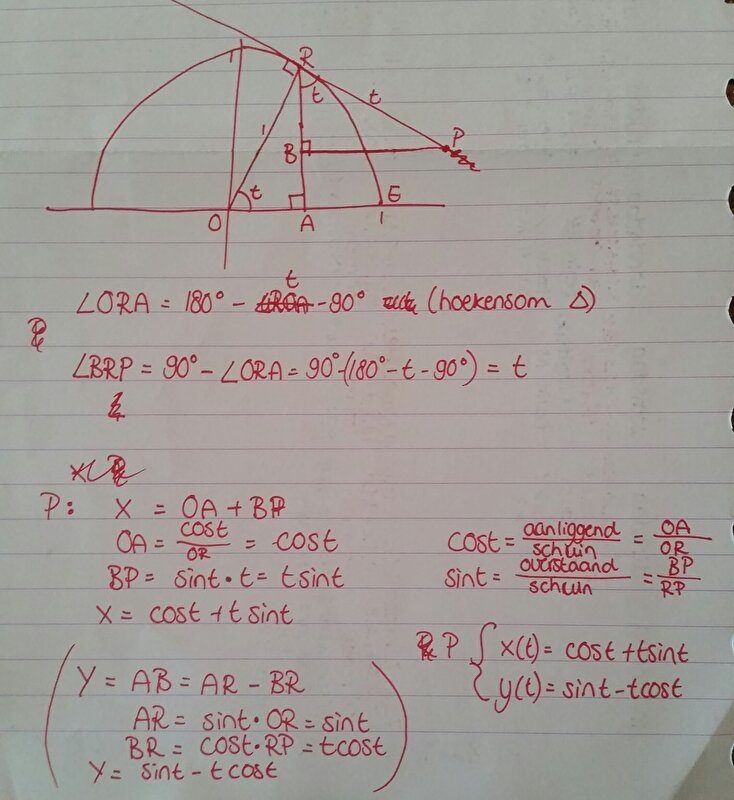 1 R
t t
1 B P
t E
O A 1
t
∠ORA = 180° - ∠ROA - 90° (hoekensom Δ)
∠BRP = 90° - ∠ORA = 90° - (180° - t - 90°) = t
P: X = OA + BP
OA = cost/OR = cost
BP = sint · t = t sint
X = cost + t sint
cost = aanliggend/schuin = OA/OR
sint = overstaand/schuin = BP/RP
P { x(t) = cost + tsint
y(t) = sint - tcost
( Y = AB = AR - BR
AR = sint · OR = sint
BR = cost · RP = tcost
Y = sint - t cost )